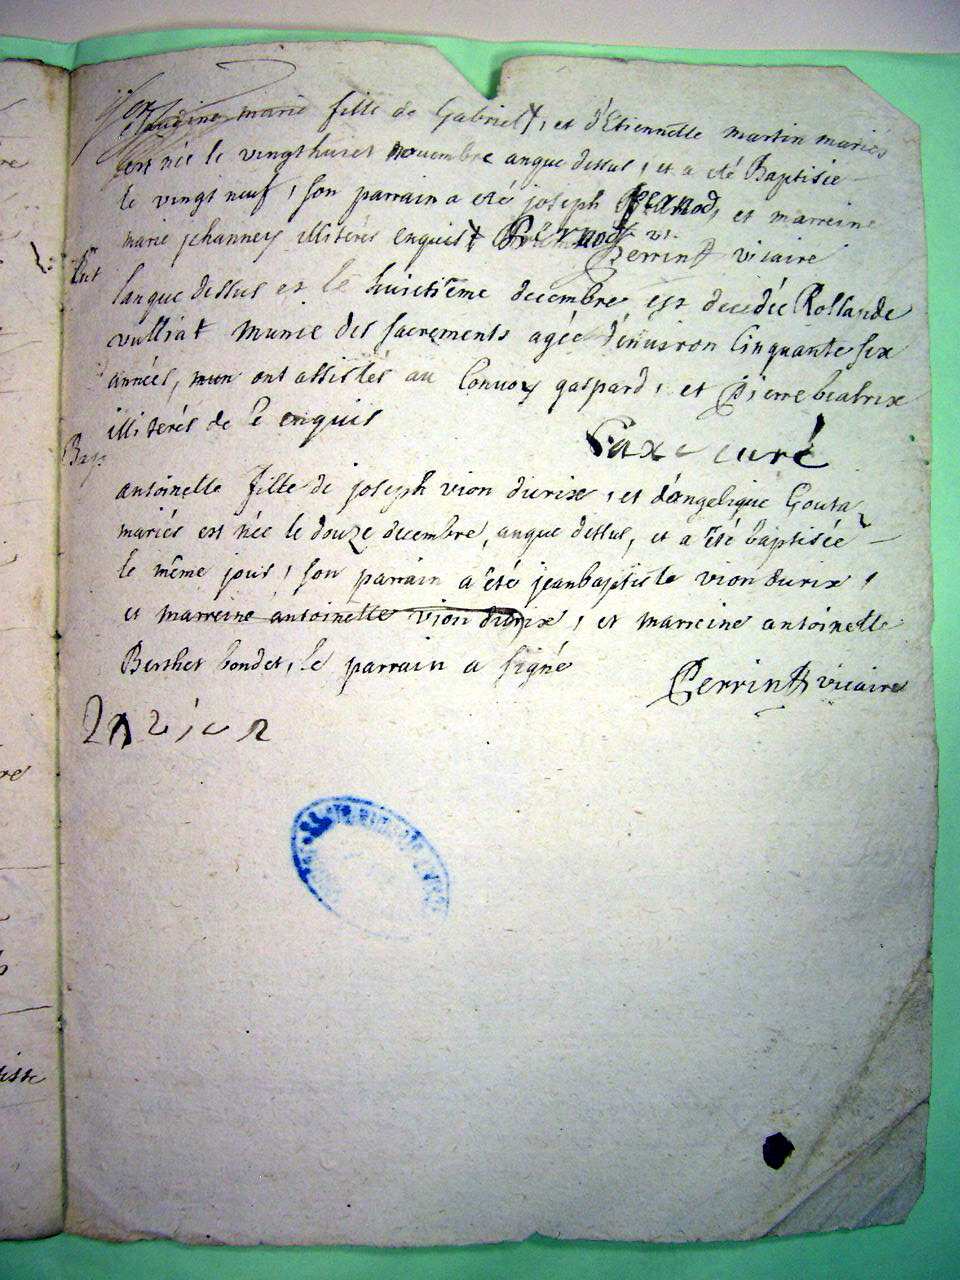 Claudine marie fille de Gabriel, et d'Etiennette martin mariés
est née le vingthuiet novembre anque dessus, et a eté Baptisée
le vingt neuf, son parrain a eté joseph et marreine
marie jehanney illitérés enquis
Perrin vicaire
lanque dessus et le huictième decembre est decedée Rollande
vulliat munie des sacrements agée d'environ Cinquante six
années, ont assistés au Convoy gaspard, et pierre beatrix
illitérés de ce enquis
Bap
Faxe curé
antoinette fille de joseph vion durix, et d'angelique Gouta
mariés est née le douze decembre, anque dessus, et a été baptisée
le même jour, son parrain a été jeanbaptiste vion durix,
et marreine antoinette vion durix, et marreine antoinette
Berthet bondet, le parrain a signé
Perrin vicaire